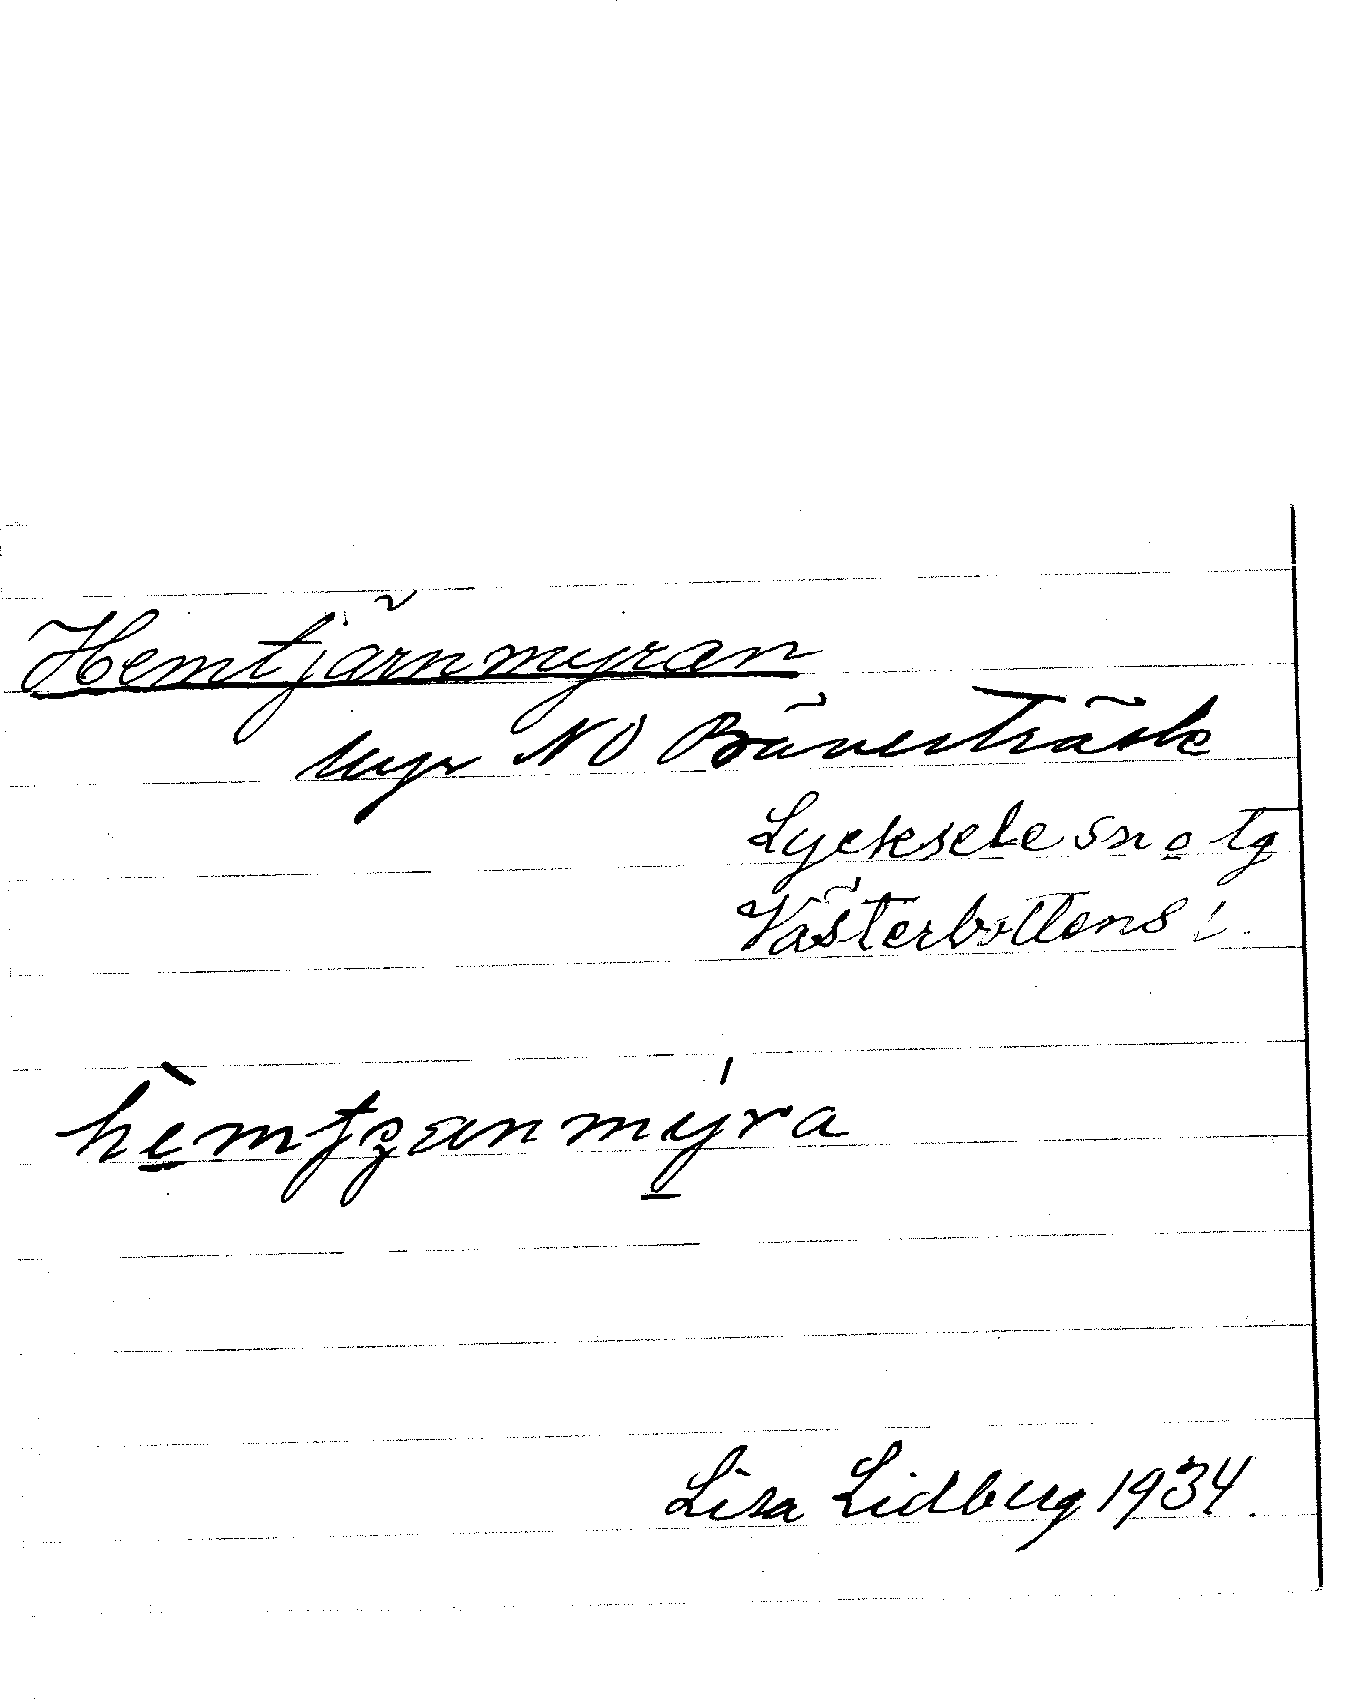 Hemtjärnmyran
myr NO Bäverträsk
Lycksele sn o tg
Västerbottens l.
hèmtʒanmýra
Lisa Lidberg 1934.